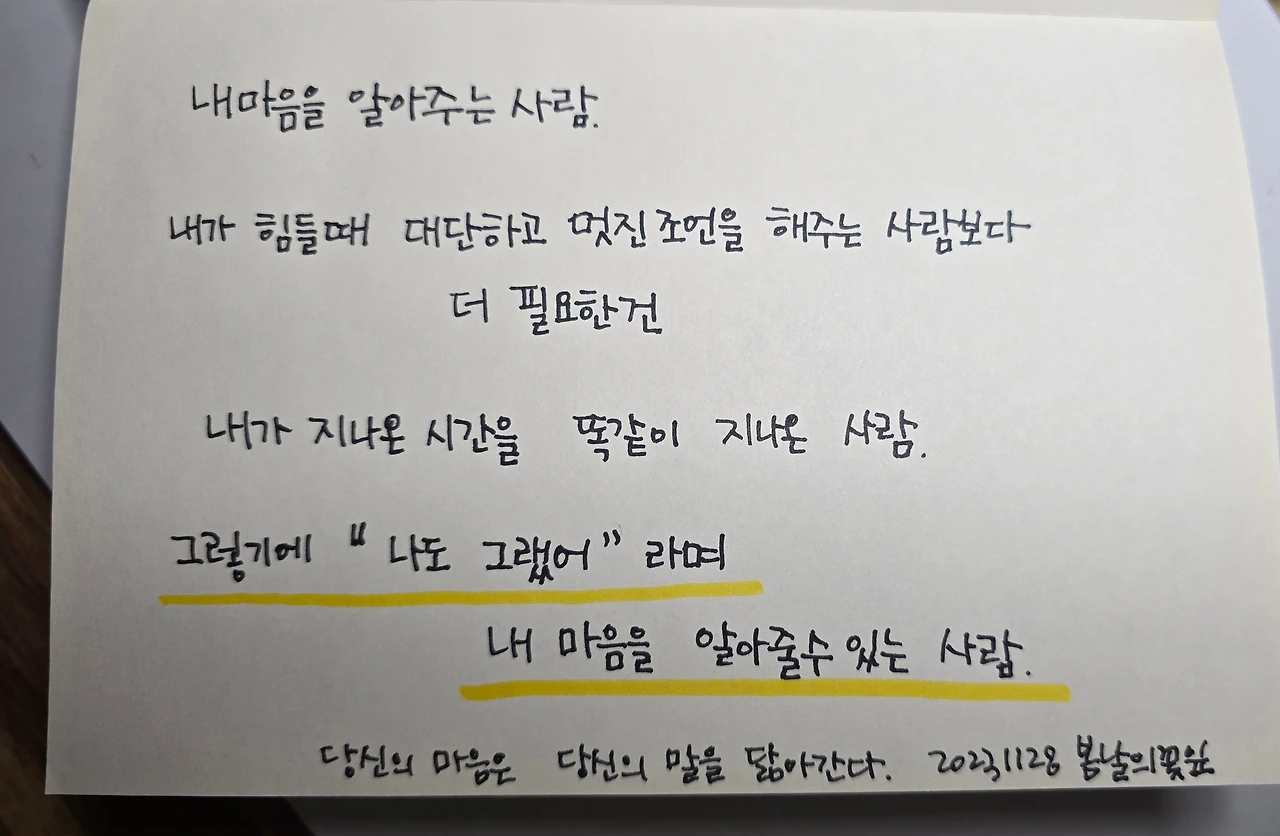 내마음을 알아주는 사람.
내가 힘들때 대단하고 멋진 조언을 해주는 사람보다
더 필요한건
내가 지나온 시간을 똑같이 지나온 사람.
그렇기에 "나도 그랬어" 라며
내 마음을 알아줄수 있는 사람.
당신의 마음은 당신의 말을 닮아간다. 20231128 봄날의꽃잎